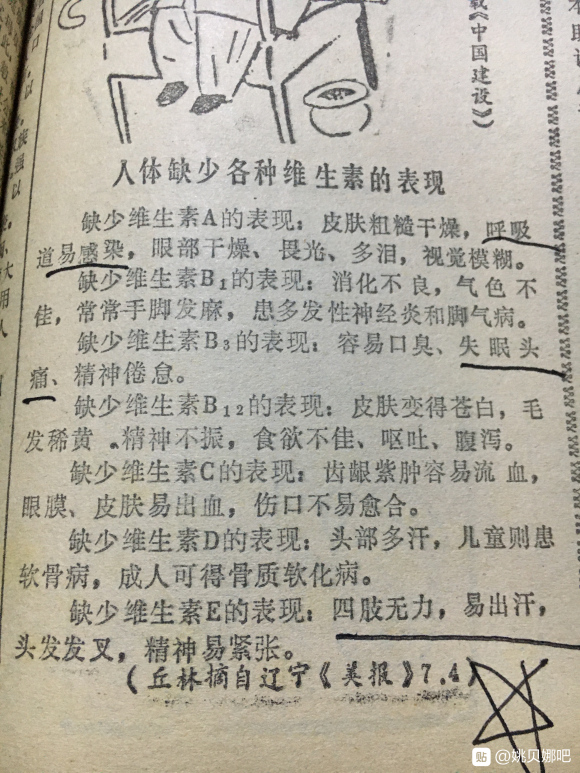 载《中国建设》）
人体缺少各种维生素的表现
缺少维生素A的表现：皮肤粗糙干燥，呼吸
道易感染，眼部干燥、畏光、多泪，视觉模糊。
缺少维生素B₁的表现：消化不良，气色不
佳，常常手脚发麻，患多发性神经炎和脚气病。
缺少维生素B₃的表现：容易口臭、失眠头
痛、精神倦怠。
缺少维生素B₁₂的表现：皮肤变得苍白，毛
发稀黄．精神不振，食欲不佳、呕吐、腹泻。
缺少维生素C的表现：齿龈紫肿容易流血，
眼膜、皮肤易出血，伤口不易愈合。
缺少维生素D的表现：头部多汗，儿童则患
软骨病，成人可得骨质软化病。
缺少维生素E的表现：四肢无力，易出汗，
头发发叉，精神易紧张。
（丘林摘自辽宁《美报》7.4）
贴 @姚贝娜吧